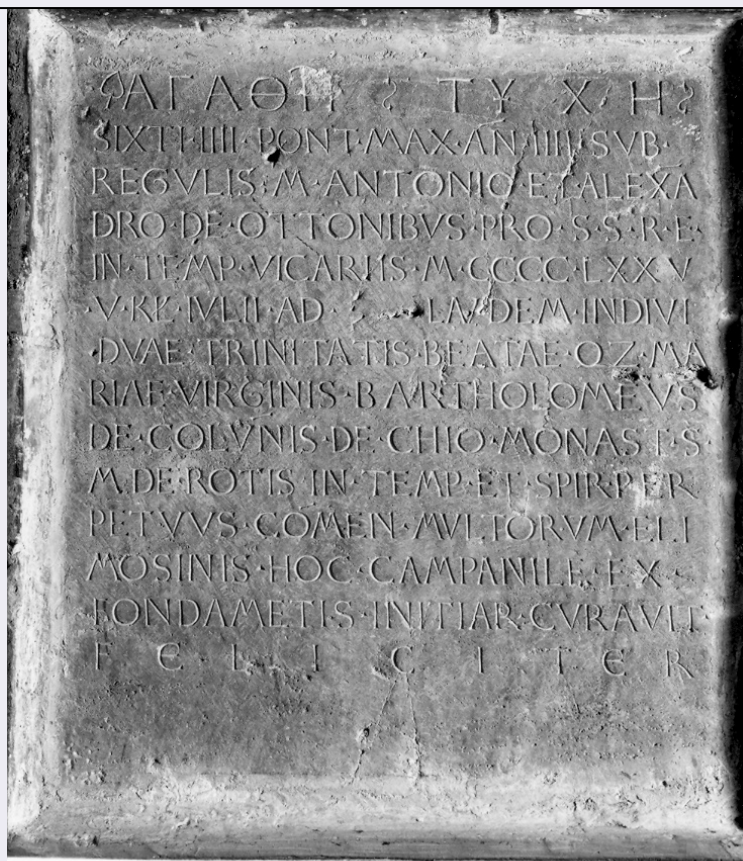 ΑΓΑΘΗ ΤΥΧΗ
SIXTI·IIII·PONT·MAX·AN·IIII·SVB·
REGVLIS·M·ANTONIO·ET·ALEXA
DRO·DE·OTTONIBVS·PRO·S·S·R·E·
IN·TEMP·VICARIIS·M·CCCC·LXXV
·V·KŁ·IVLII·AD LAVDEM·INDIVI
DVAE·TRINITATIS·BEATAE·QZ·MA
RIAE·VIRGINIS·BARTHOLOMEVS
DE·COLVNIS·DE·CHIO·MONAST·S·
M·DE·ROTIS·IN·TEMP·ET·SPIR·PER
PETVVS·COMEN·MVLTORVM·ELI
MOSINIS·HOC·CAMPANILE·EX·
FONDAMETIS·INITIAR·CVRAVIT·
FELICITER